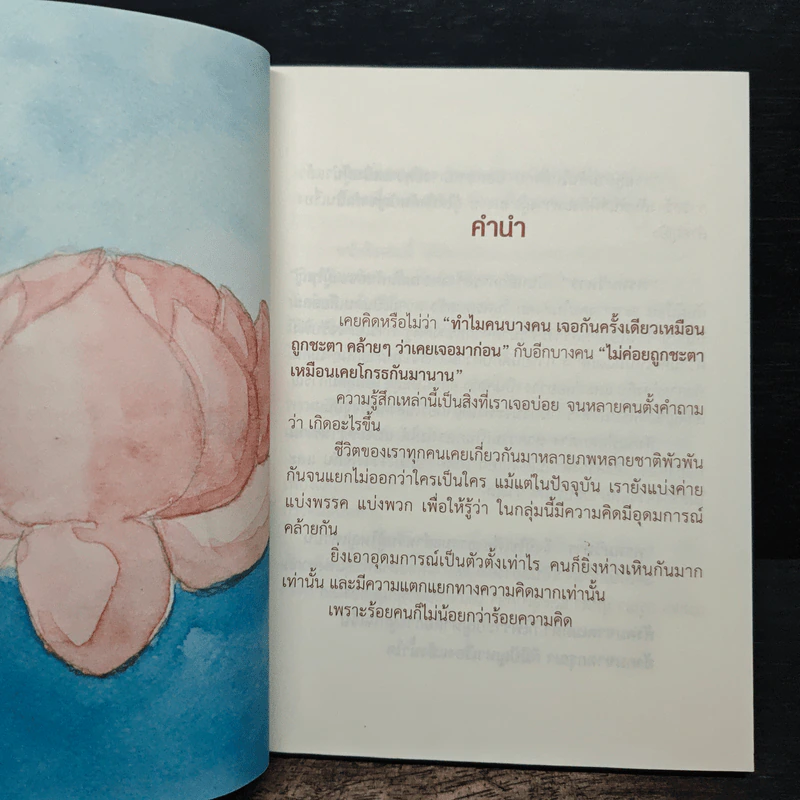 คำนำ
เคยคิดหรือไม่ว่า “ทำไมคนบางคน เจอกันครั้งเดียวเหมือน
ถูกชะตา คล้ายๆ ว่าเคยเจอมาก่อน” กับอีกบางคน “ไม่ค่อยถูกชะตา
เหมือนเคยโกรธกันมานาน”
ความรู้สึกเหล่านี้เป็นสิ่งที่เราเจอบ่อย จนหลายคนตั้งคำถาม
ว่า เกิดอะไรขึ้น
ชีวิตของเราทุกคนเคยเกี่ยวกันมาหลายภพหลายชาติพัวพัน
กันจนแยกไม่ออกว่าใครเป็นใคร แม้แต่ในปัจจุบัน เรายังแบ่งค่าย
แบ่งพรรค แบ่งพวก เพื่อให้รู้ว่า ในกลุ่มนี้มีความคิดมีอุดมการณ์
คล้ายกัน
ยิ่งเอาอุดมการณ์เป็นตัวตั้งเท่าไร คนก็ยิ่งห่างเหินกันมาก
เท่านั้น และมีความแตกแยกทางความคิดมากเท่านั้น
เพราะร้อยคนก็ไม่น้อยกว่าร้อยความคิด